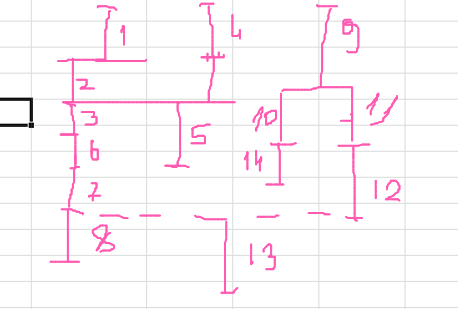 1 4 9
2
3 5 10 11
6 14
7 12
8 13